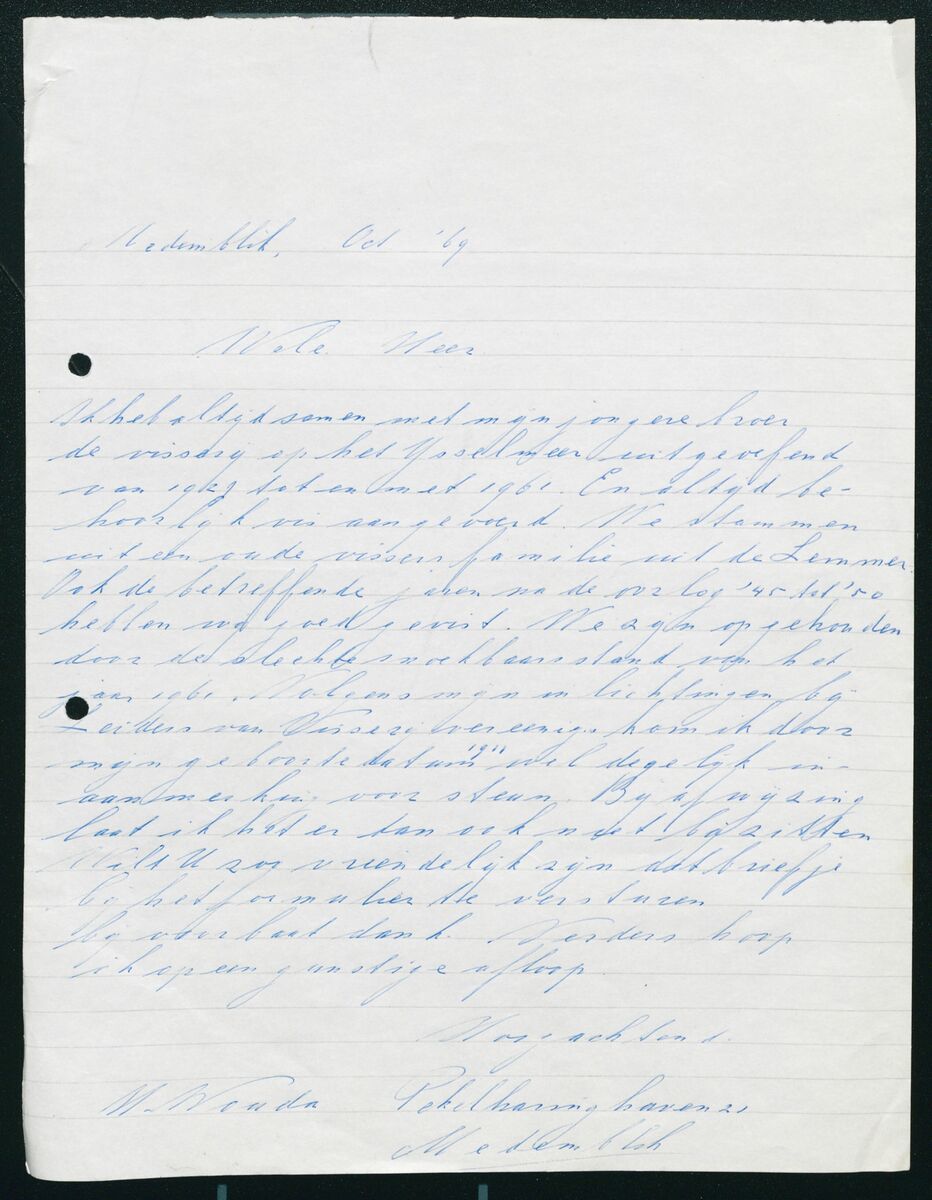 Medemblik, Oct '69
Wele. Heer
Ik heb altijd samen met mijn jongere broer
de visserij op het Ysselmeer uitgeoefend
van 1927 tot en met 1961. En altijd be-
hoorlijk vis aangevoerd. We stammen
uit een oude vissersfamilie uit de Lemmer.
Ook de betreffende jaren na de oorlog '45 tot '50
hebben wij goed gevist. We zijn opgehouden
door de slechte snoekbaarsstand van het
jaar 1961. Volgens mijn inlichtingen bij
Leiders van Visserij vereenig. kom ik door
mijn geboorte datum 1911 wel degelijk in-
aanmerking voor steun. Bij afwijzing
laat ik het er dan ook niet bij zitten
Wilt U zoo vriendelijk zijn dit briefje
bij het formulier te versturen
bij voorbaat dank. Verders hoop
ik op een gunstige afloop.
Hoogachtend.
W. Wouda Pekelharinghaven 21
Medemblik